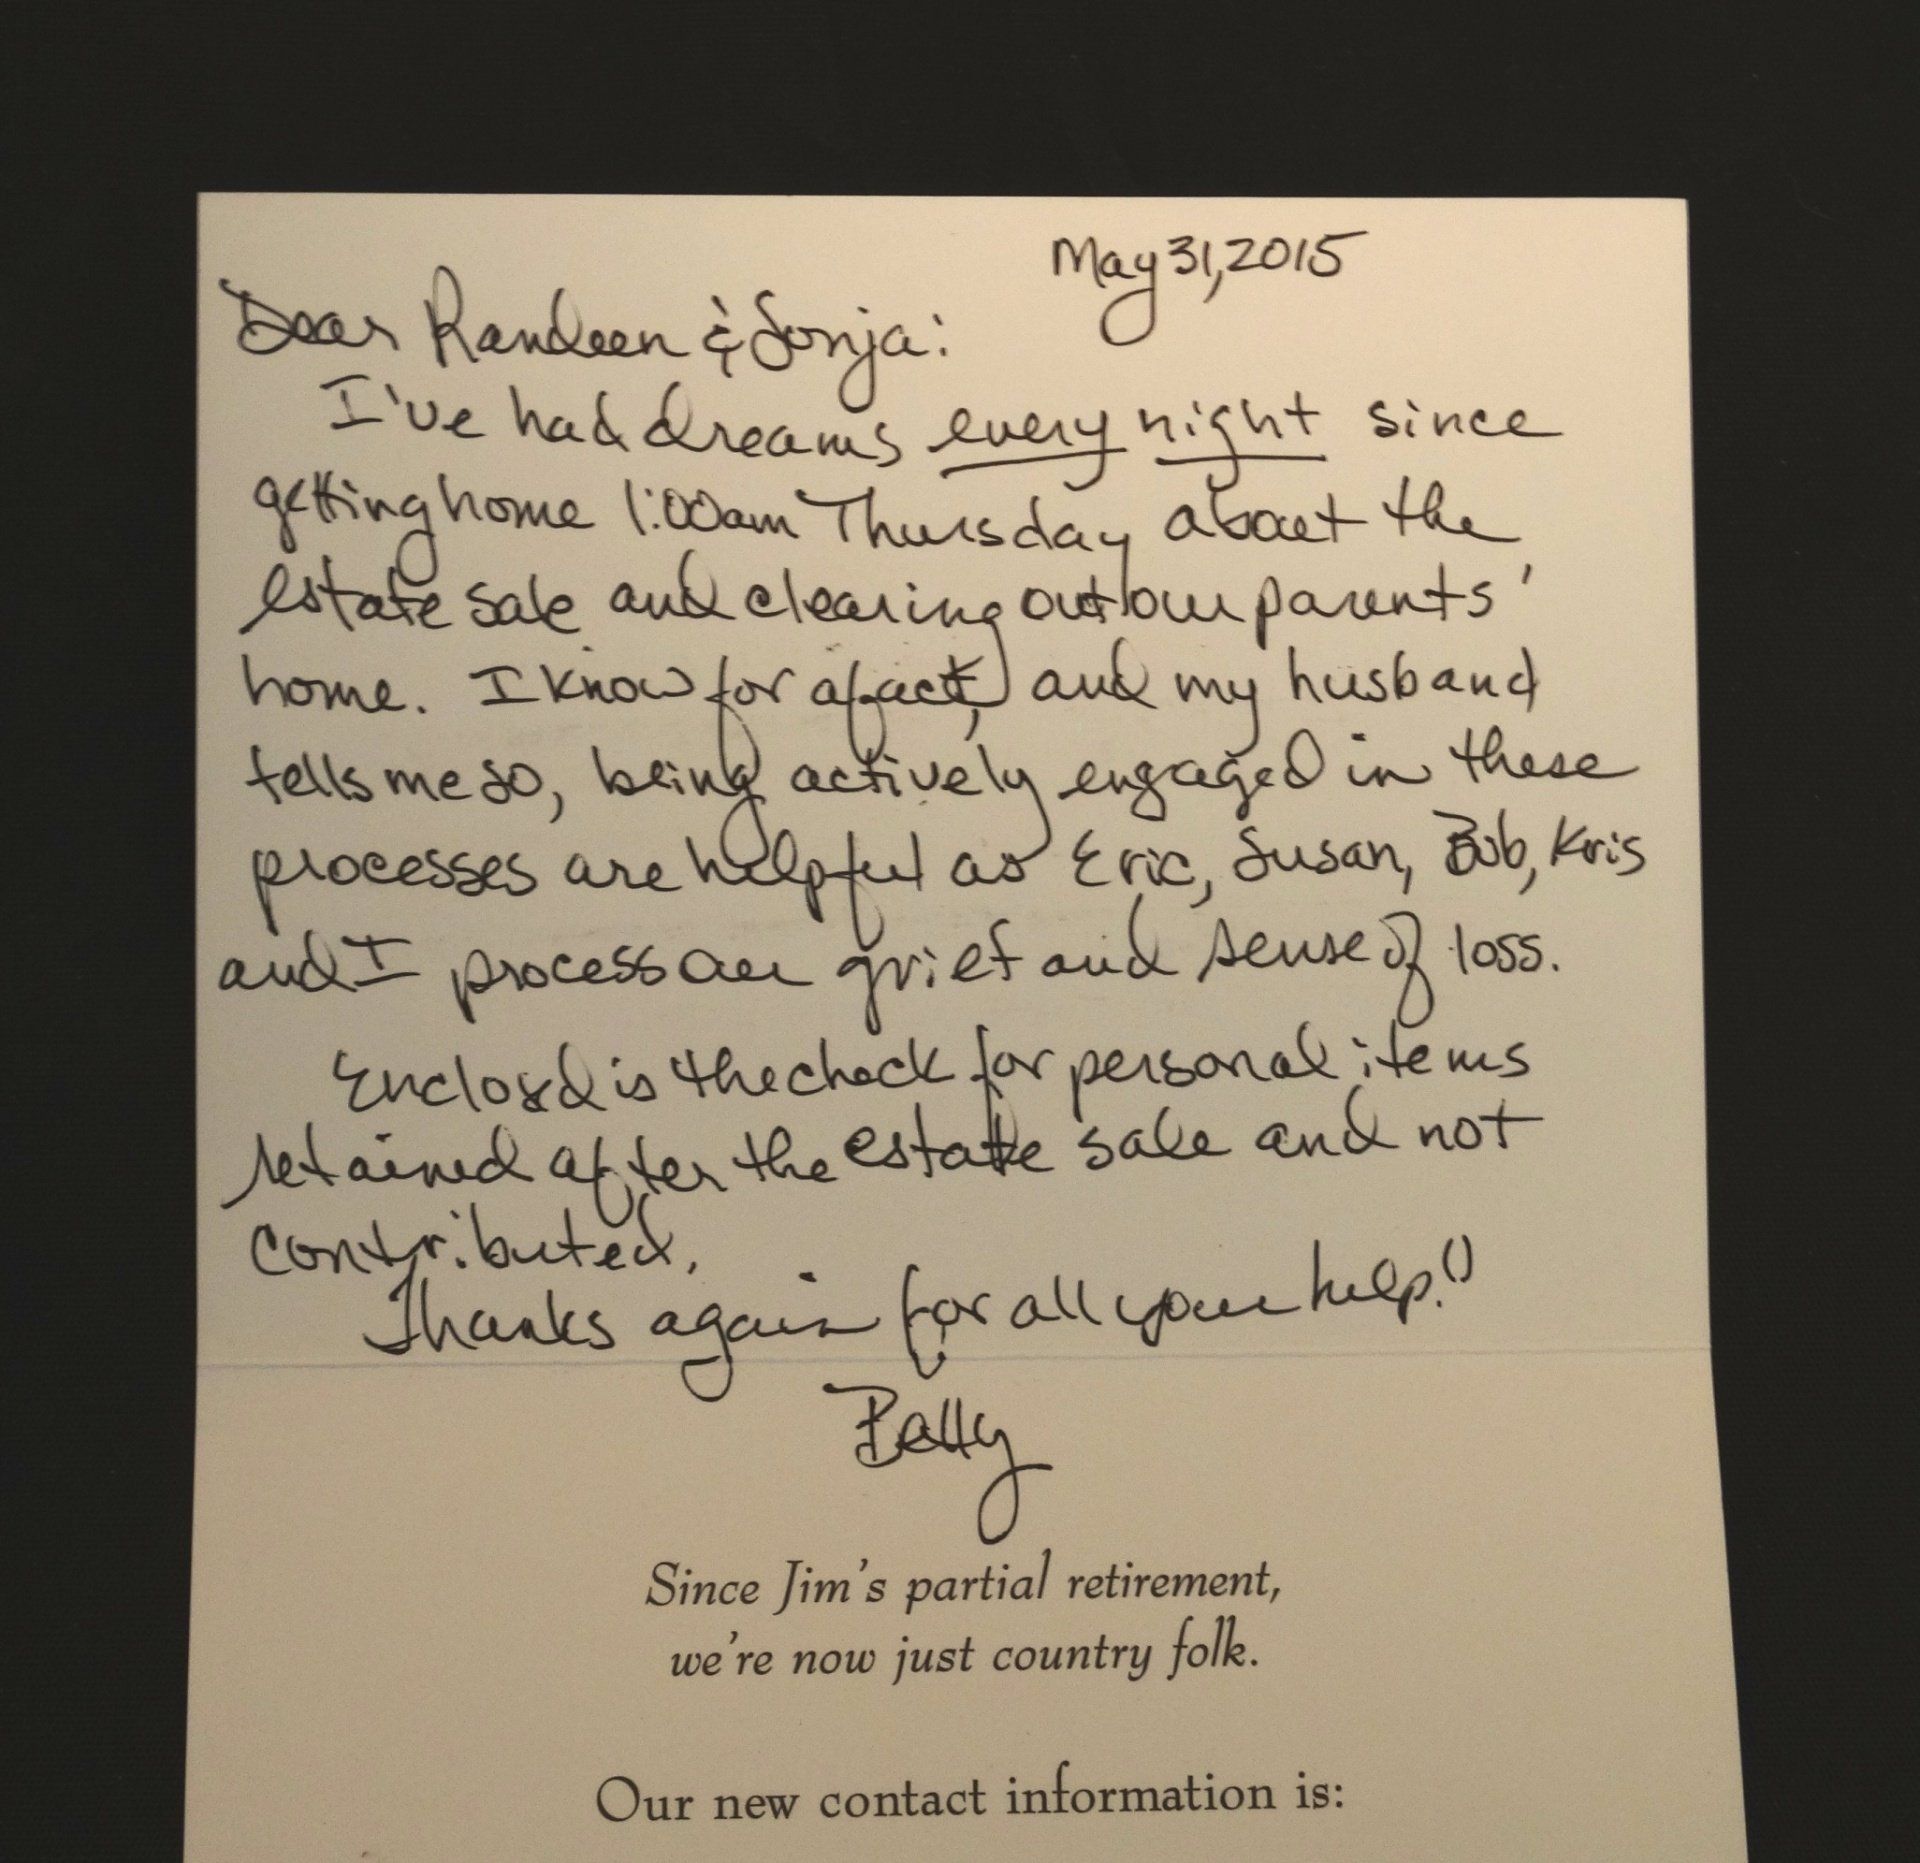 May 31, 2015
Dear Randeen & Sonja:
I've had dreams every night since
getting home 1:00am Thursday about the
estate sale and clearing out our parents'
home. I know for a fact, and my husband
tells me so, being actively engaged in these
processes are helpful as Eric, Susan, Bob, Kris
and I process our grief and sense of loss.
Enclosed is the check for personal items
retained after the estate sale and not
contributed.
Thanks again for all your help!!
Betty
Since Jim's partial retirement,
we're now just country folk.
Our new contact information is: